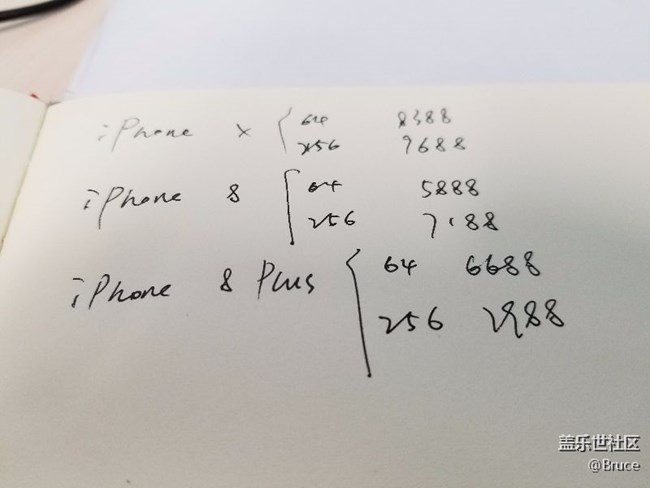 iPhone X { 64 8388
256 9688
iPhone 8 { 64 5888
256 7188
iPhone 8 Plus { 64 6688
256
盖乐世社区
@Bruce